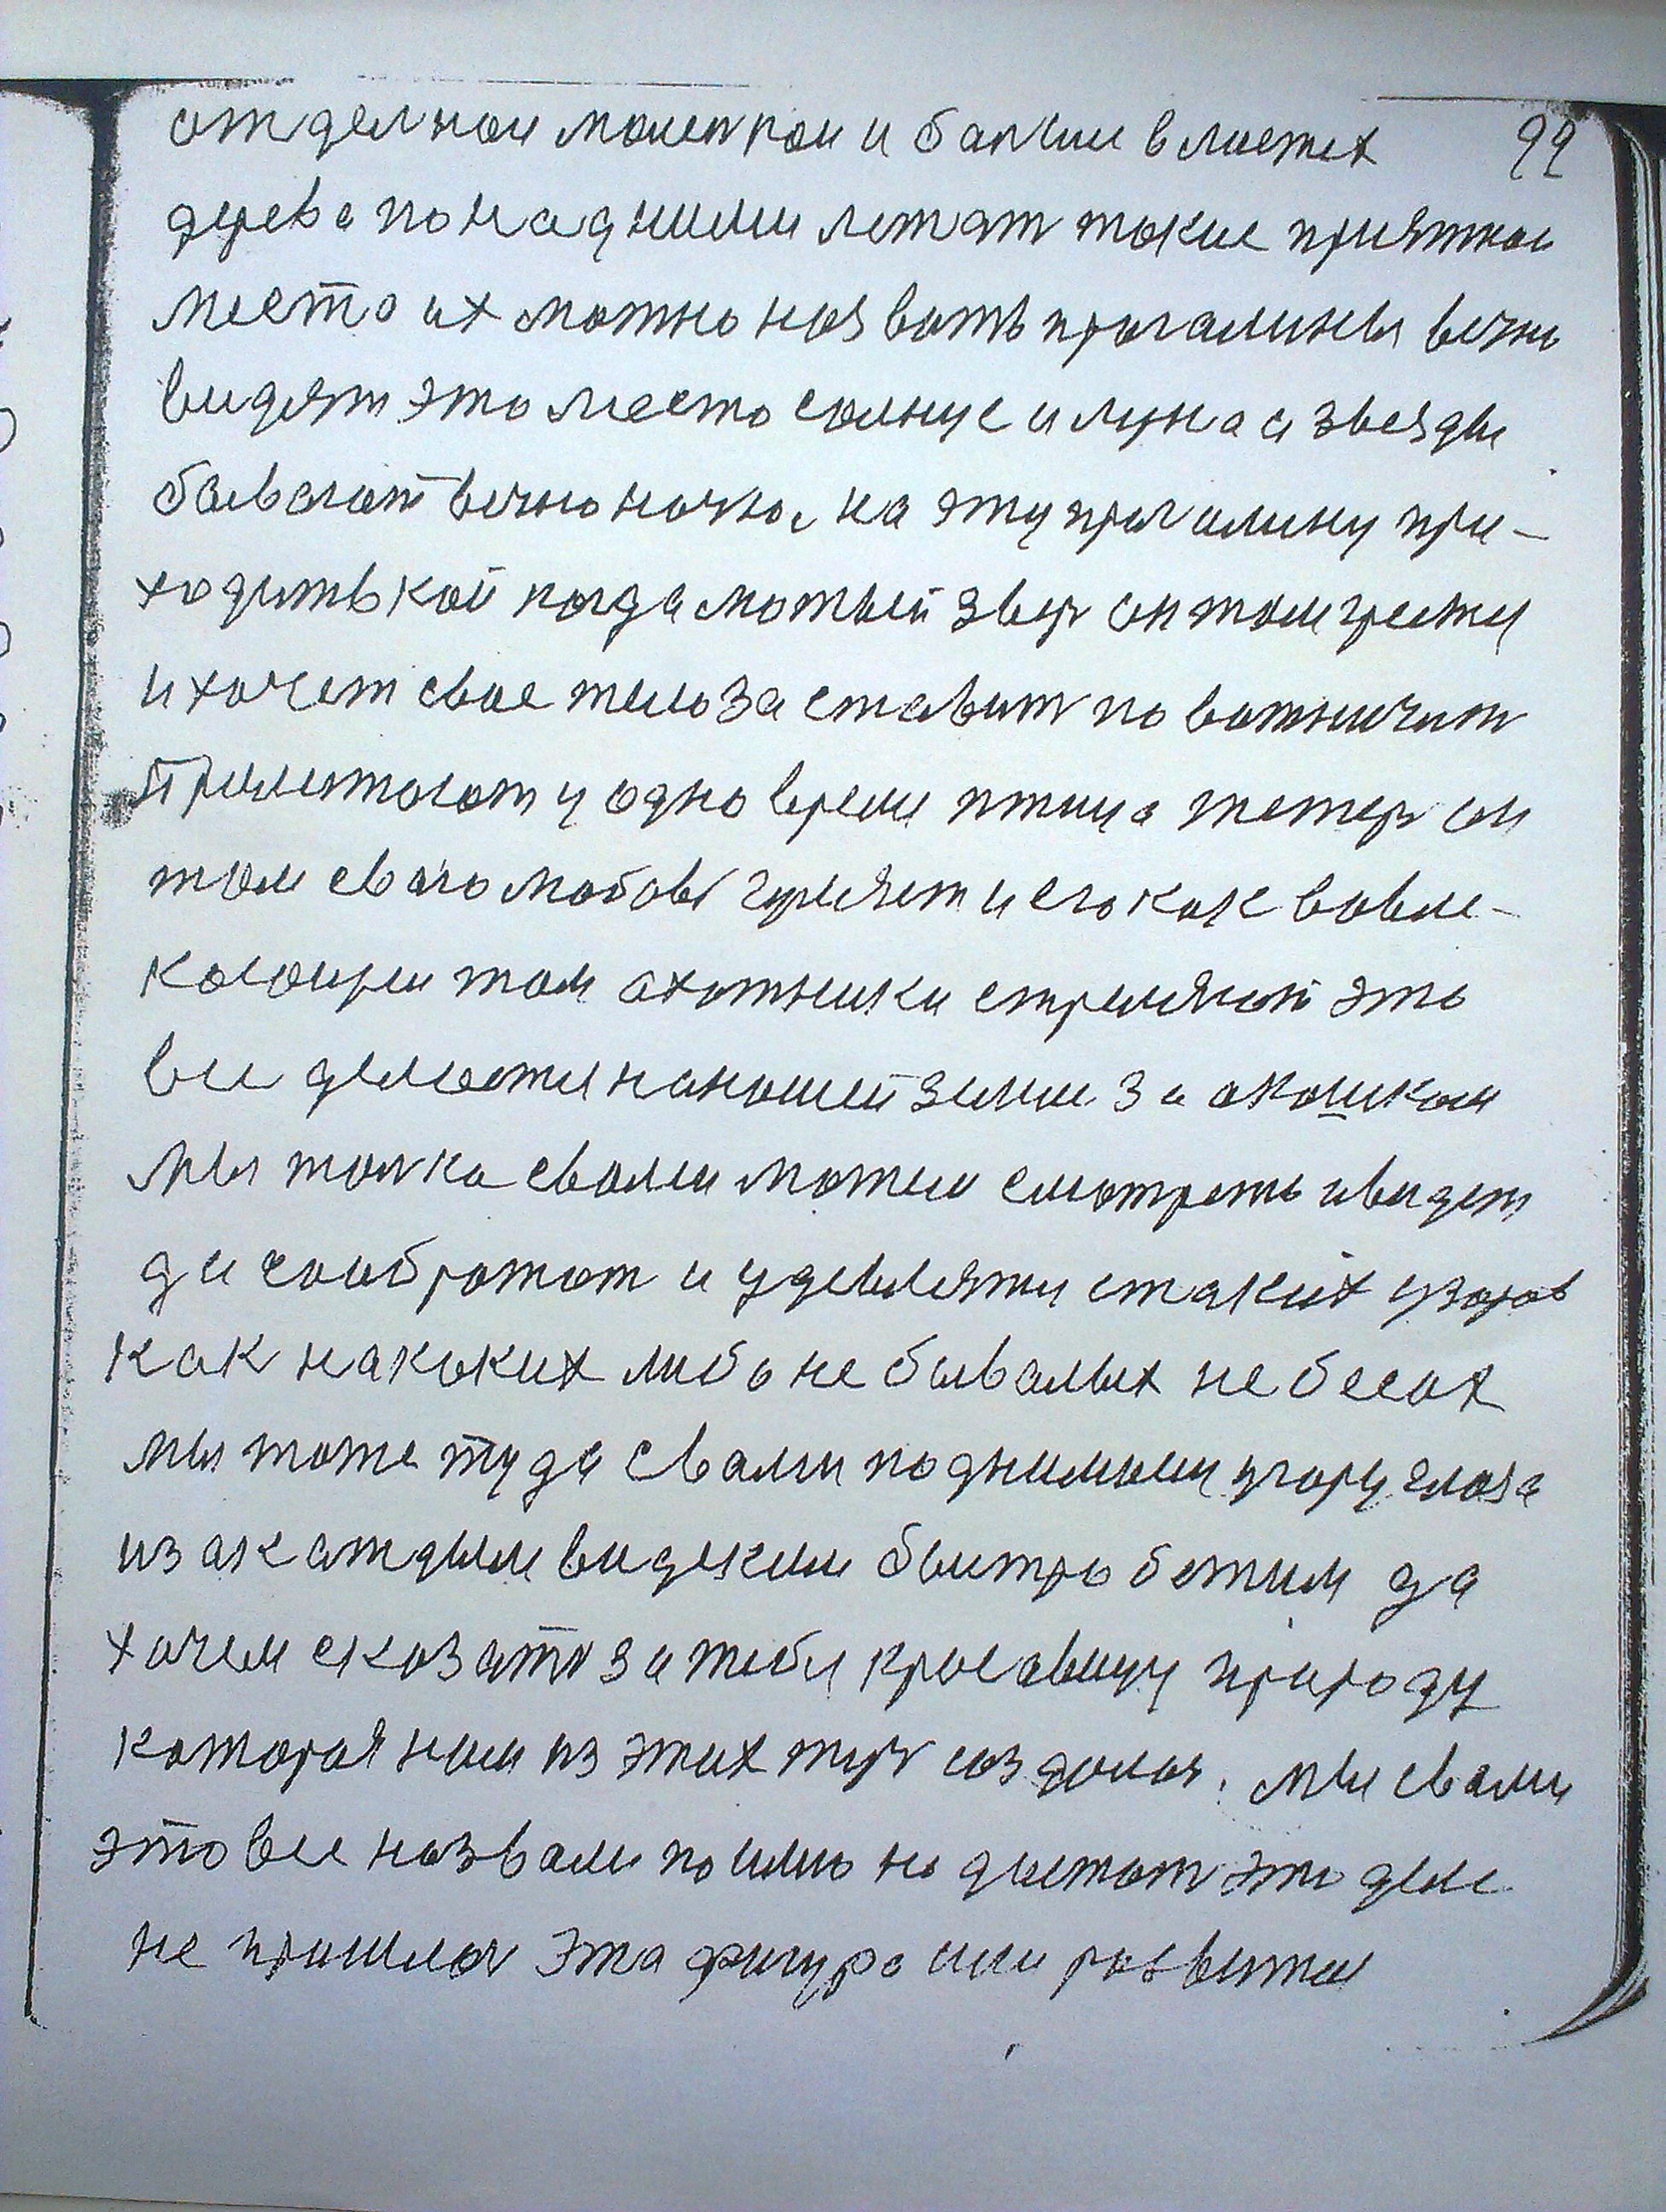 отделнои маленкои и балчии в листех 99
дерева понадними летят такие приятнои
место их можно назвать прагалины вечно
видят это место солнце и луна а звезды
бывают вечно ночно, на эту прагалину при-
ходить кой когда мотый звер он там греты
и хочет свое тело заставит поважничат
Прилетают у одно время птица тетер он
там сваю любовь гуляет и его как вовле-
кающи там ахотники стреляют это
все делается нанашей земли за акошком
мы толка свами можем смотреть и видет
да соображат и удевлятя стаких узоров
как накаких либо не бывалых небесах
мы тоже туда свами поднимыим угору глаза
из акаждым видеким быстро бежим да
хочем сказать за тебя красавицу природу
которая нам из этих тер создалоя. мы свами
это все назвали по имю недастат это деле
не пришлоя эта фигура или развития